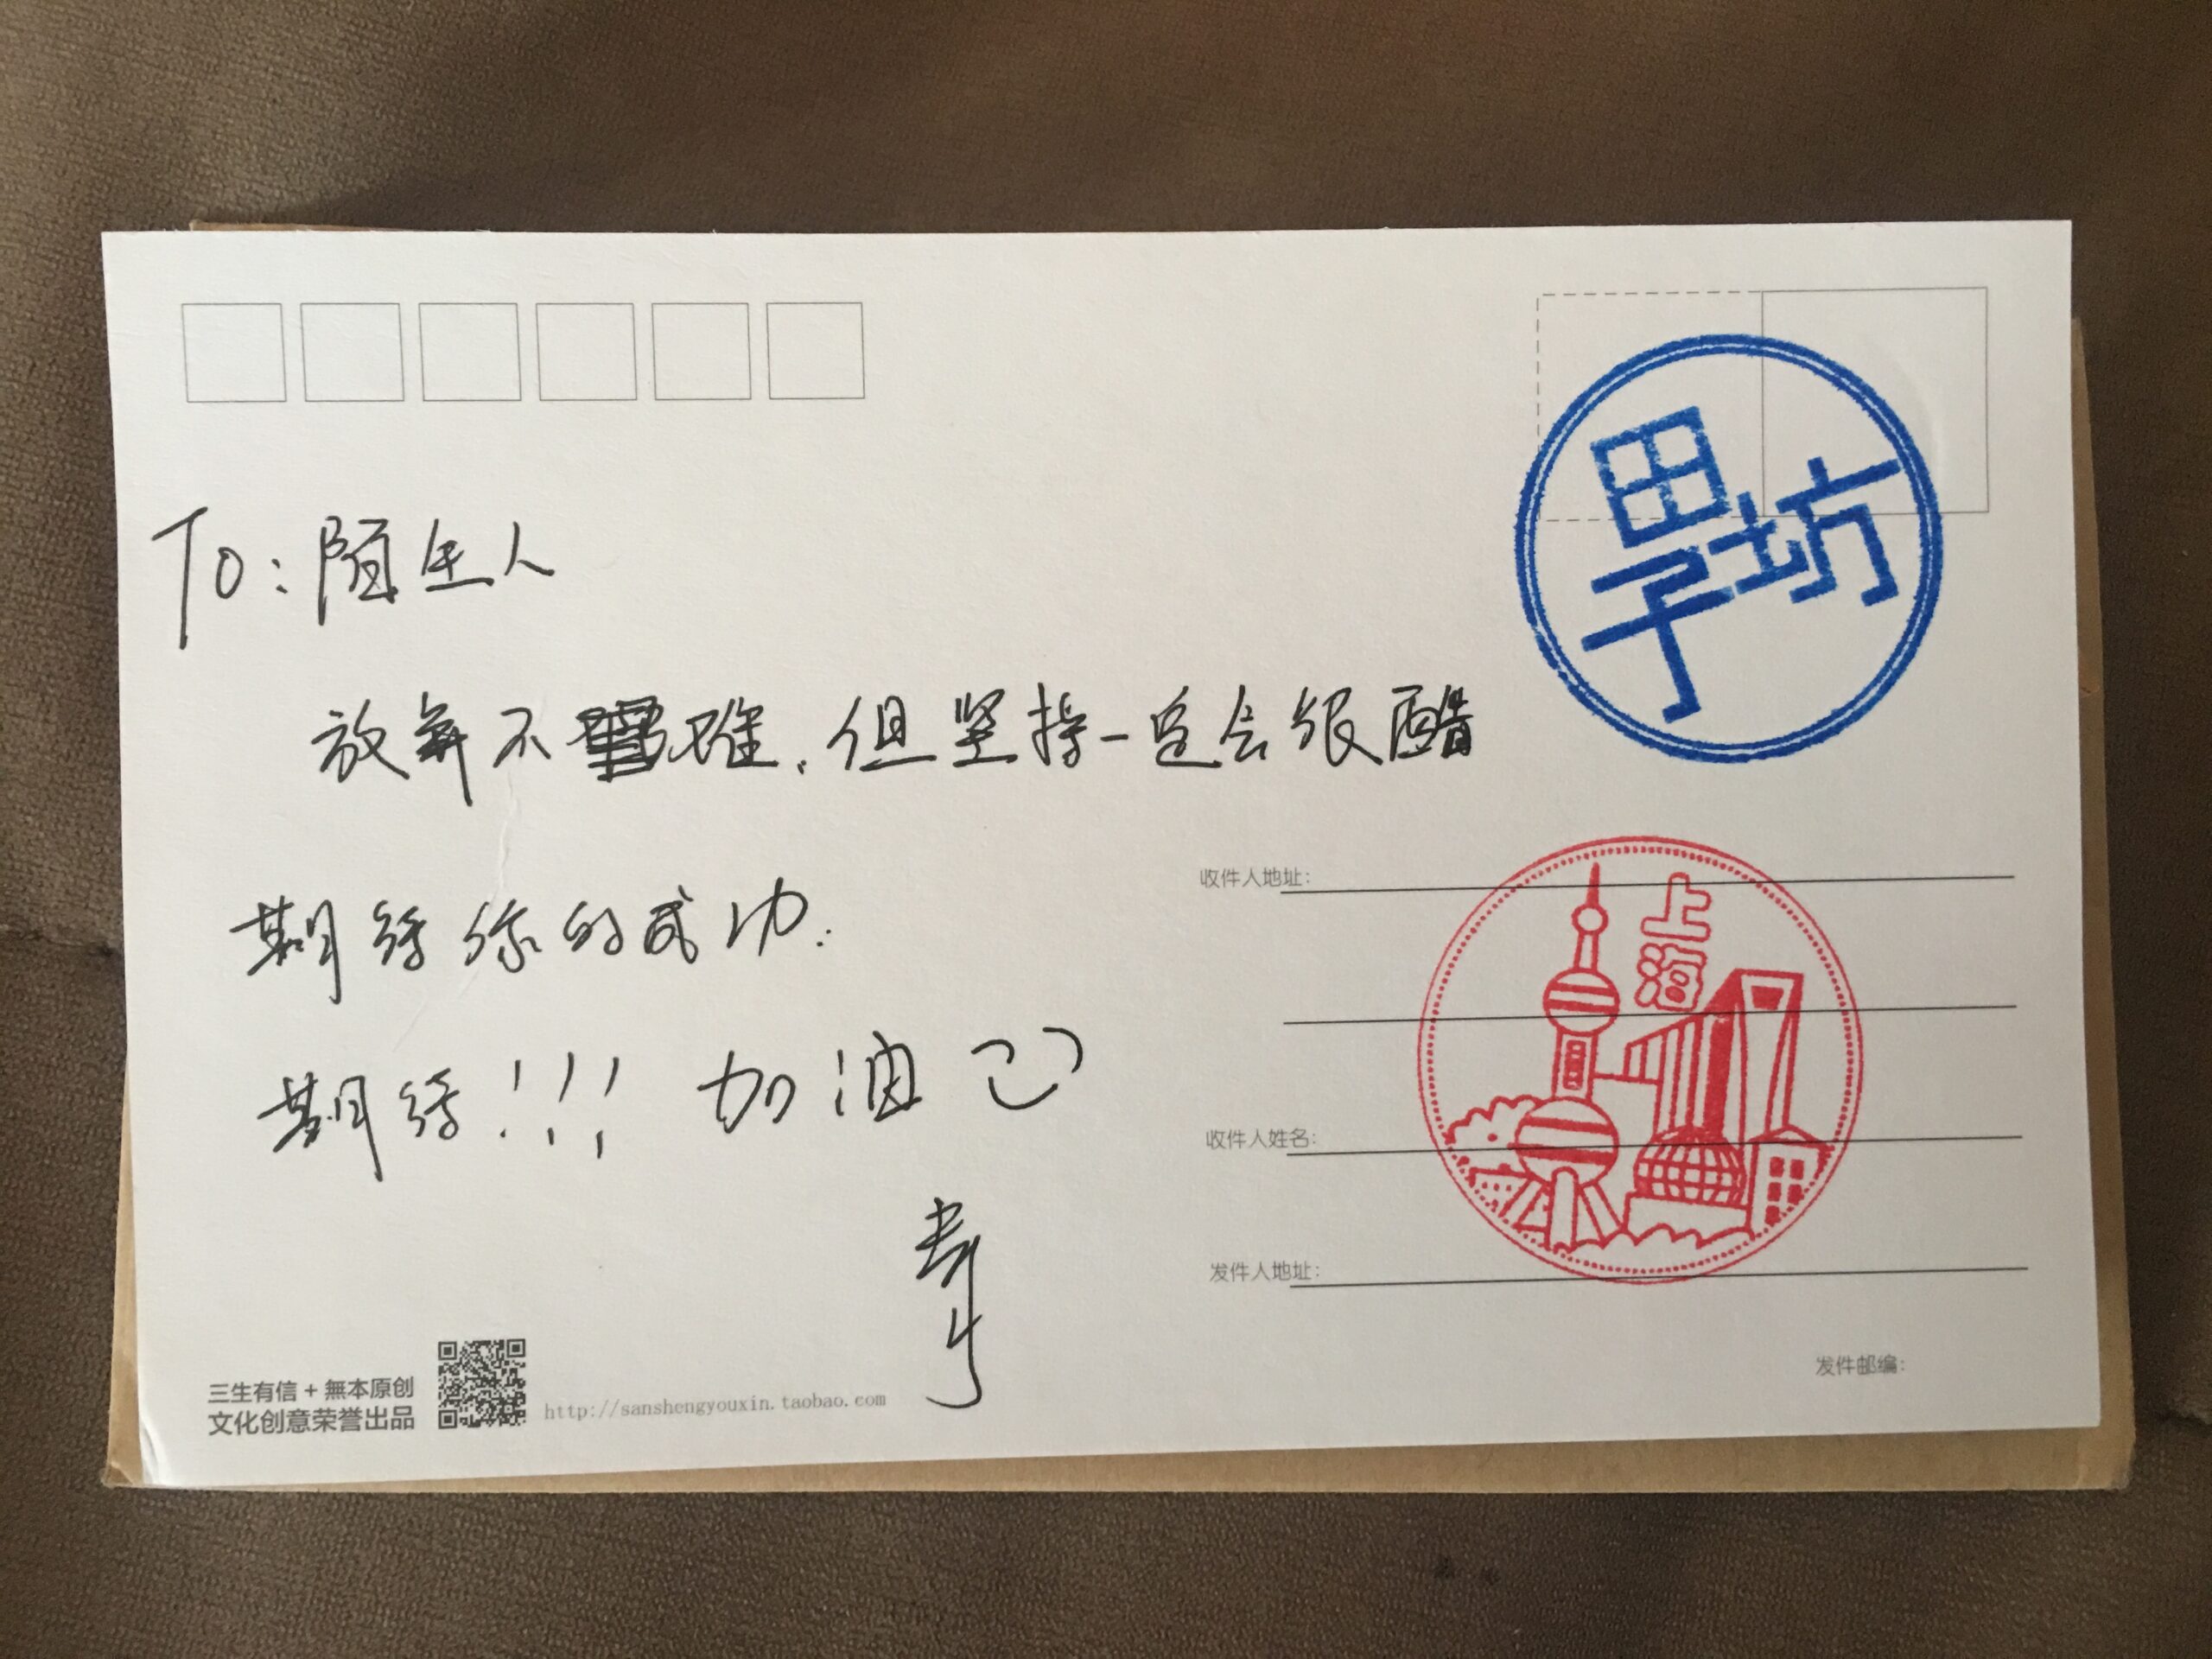 To:陌生人
放弃不难.但坚持一定会很酷
期待你的成功.
期待!!! 加油
田子坊
上海
收件人地址:
收件人姓名:
发件人地址:
发件邮编:
三生有信 + 無本原创
文化创意荣誉出品
http://sanshengyouxin.taobao.com